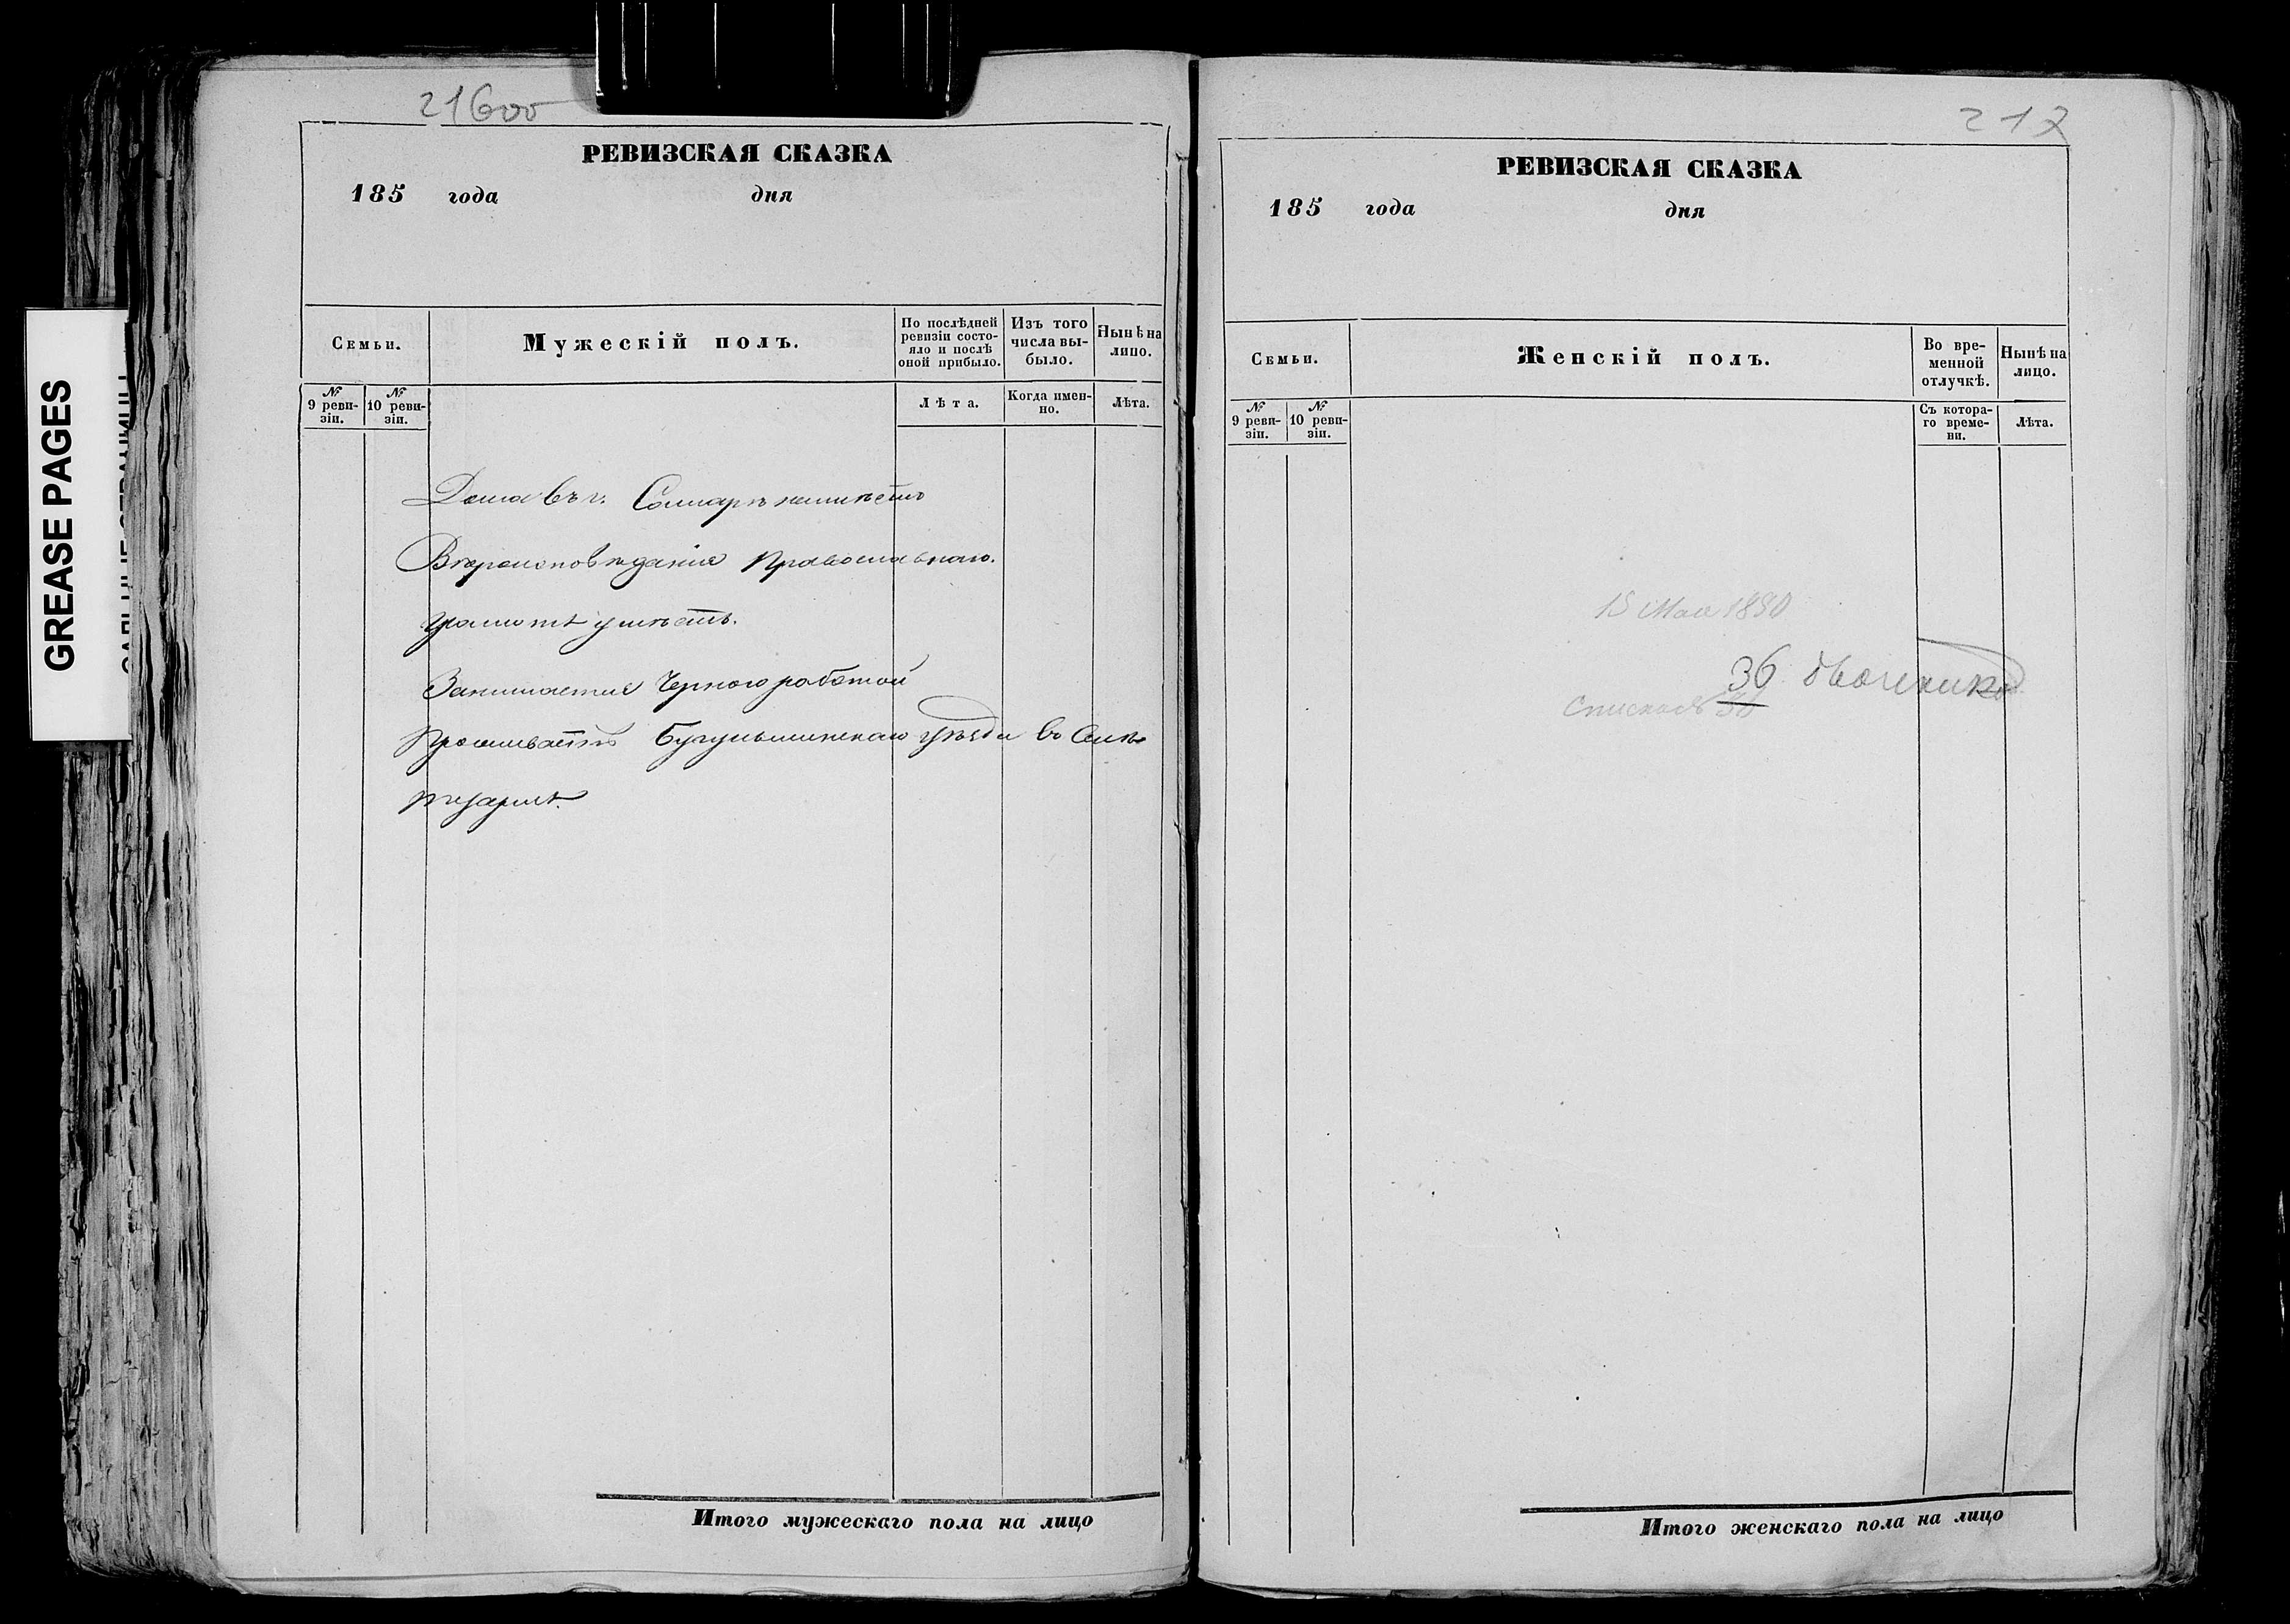 GREASE PAGES
216об
РЕВИЗСКАЯ СКАЗКА
185 года дня
Семьи.
Мужескій полъ.
По послѣдней ревизіи состояло и послѣ оной прибыло.
Изъ того числа выбыло.
Нынѣ на лицо.
№ 9 ревизіи.
№ 10 ревизіи.
Лѣта.
Когда именно.
Лѣта.
Дома въ г. Самарѣ неимѣетъ
Вѣроисповѣданія Православнаго.
Грамотѣ умѣетъ.
Занимается Черного работой
Проживаетъ Бугульминскаго уѣзда въ
Итого мужескаго пола на лицо
217
РЕВИЗСКАЯ СКАЗКА
185 года дня
Семьи.
Женскій полъ.
Во временной отлучкѣ.
Нынѣ на лицо.
№ 9 ревизіи.
№ 10 ревизіи.
Съ котораго времени.
Лѣта.
15 Мая 1890
36
Списковъ 36
Итого женскаго пола на лицо